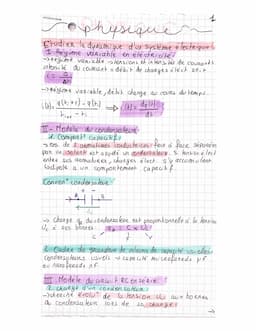 1
physique
Etudier la dynamique d'un système électrique
I - Régime variable en électricité
→ Régime variable → tensions et intensités de courants
intensité du courant = débit de charges élect.
i = Q / Δt
→ Régime variable, débit change au cours du temps.
i(t) = q(ti+1) - q(ti) / ti+1 - ti → i(t) = dq(t) / dt
II - Modèle du condensateur
1. Comport. capacitif
de 2 armatures conductrices face à face séparées
par un isolant est appelé un condensateur. Si tension élect
entre ses armatures, charges élect. s'y accumulent
comportement capacitif.
Convent° condensateur
→ charge q du condensateur est proportionnelle à la tension
Uc à ses bornes
2. Ordre de grandeur de valeurs de capacité usuelles
condensateurs usuels → capacité au microfarads µF
ou nanofarads nF.
III - Modèle du circuit RC en série
1. charge d'un condensateur
→ décrire évolut° de la tension Uc aux bornes
du condensateur lors de sa charge